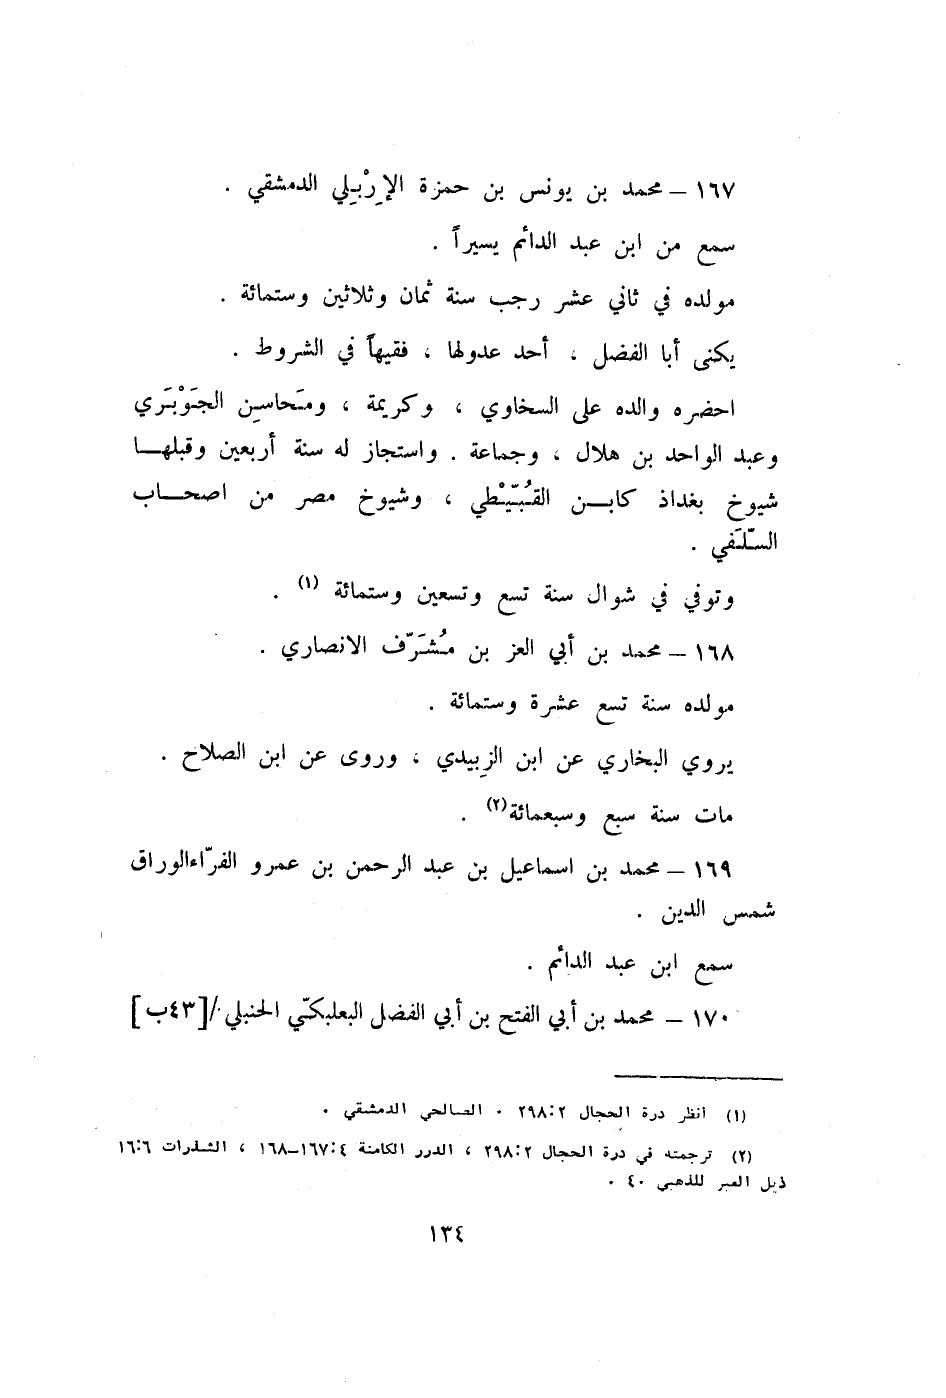 ١٦٧ – محمد بن يونس بن حمزة الإِرْبِلي الدمشقي .
سمع من ابن عبد الدائم يسيراً .
مولده في ثاني عشر رجب سنة ثمان وثلاثين وستمائة .
يكنى أبا الفضل ، أحد عدولها ، فقيهاً في الشروط .
احضره والده على السخاوي ، وكريمة ، ومَحاسِن الجَوْبَري
وعبد الواحد بن هلال ، وجماعة . واستجاز له سنة أربعين وقبلهـا
شيوخ بغداذ كابـن القُبَّيْطي ، وشيوخ مصر من اصحـاب
السِّلَفي .
وتوفي في شوال سنة تسع وتسعين وستمائة (١) .
١٦٨ – محمد بن أبي العز بن مُشَرَّف الانصاري .
مولده سنة تسع عشرة وستمائة .
يروي البخاري عن ابن الزِبيدي ، وروى عن ابن الصلاح .
مات سنة سبع وسبعمائة(٢) .
١٦٩ – محمد بن اسماعيل بن عبد الرحمن بن عمرو الفرّاءالوراق
شمس الدين .
سمع ابن عبد الدائم .
١٧٠ – محمد بن أبي الفتح بن أبي الفضل البعلبكّي الحنبلي /[٤٣ب]
(١) انظر درة الحجال ٢٩٨:٢ . الصالحي الدمشقي .
(٢) ترجمته في درة الحجال ٢٩٨:٢ ، الدرر الكامنة ١٦٧:٤–١٦٨ ، الشذرات ١٦:٦
ذيل العبر للذهبي ٤٠ .
١٣٤